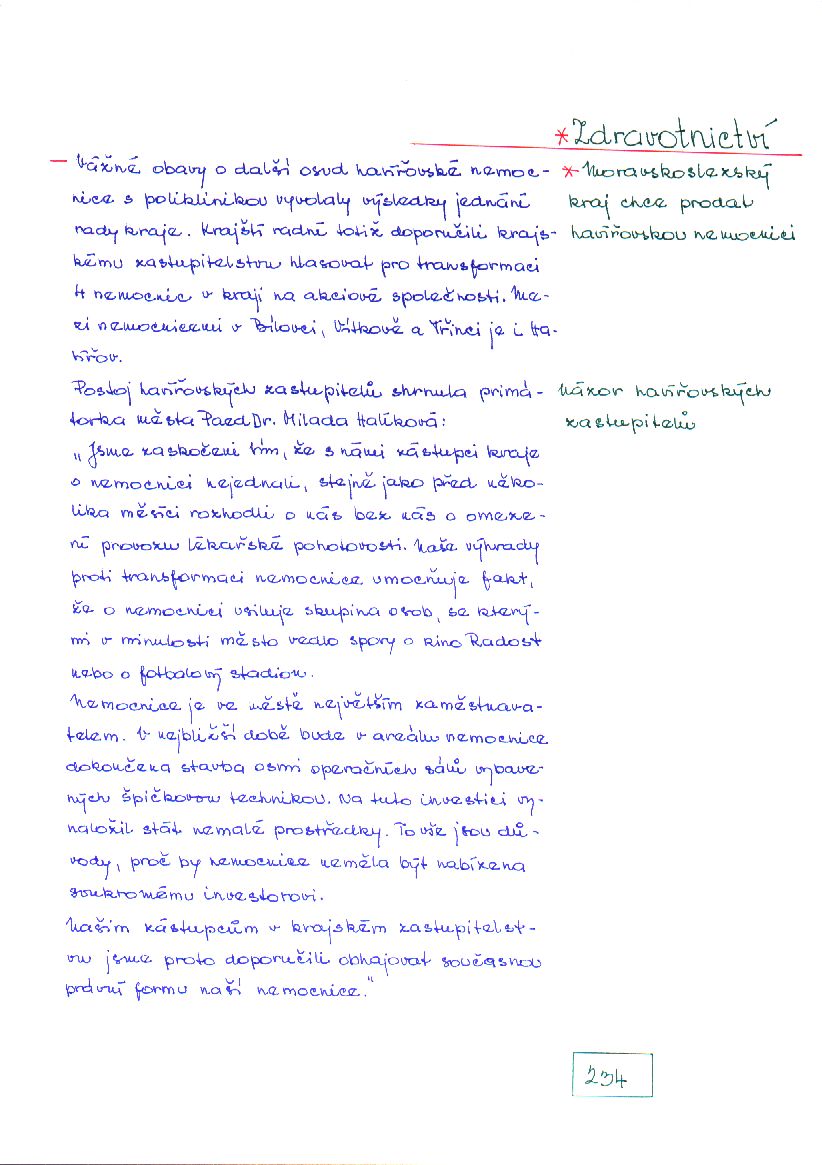 *Zdravotnictví
Vážné obavy o další osud havířovské nemoc-
nice s poliklinikou vyvolaly výsledky jednání
rady kraje. Krajští radní totiž doporučili krajs-
kému zastupitelstvu hlasovat pro transformaci
4 nemocnic v kraji na akciové společnosti. Me-
zi nemocnicemi v Bílovci, Vítkově a Třinci je i Ha-
vířov.
*Moravskoslezský
kraj chce prodat
havířovskou nemocnici
Postoj havířovských zastupitelů shrnula primá-
torka města PaedDr. Milada Halíková:
„Jsme zaskočeni tím, že s námi zástupci kraje
o nemocnici nejednali, stejně jako před něko-
lika měsíci rozhodli o nás bez nás o omeze-
ní provozu lékařské pohotovosti. Naše výhrady
proti transformaci nemocnice umocňuje fakt,
že o nemocnici usiluje skupina osob, se který-
mi v minulosti město vedlo spory o kino Radost
nebo o fotbalový stadion.
Názor havířovských
zastupitelů
Nemocnice je ve městě největším zaměstnava-
telem. V nejbližší době bude v areálu nemocnice
dokončena stavba osmi operačních sálů vybave-
ných špičkovou technikou. Na tuto investici vy-
naložil stát nemalé prostředky. To vše jsou dů-
vody, proč by nemocnice neměla být nabízena
soukromému investorovi.
Našim zástupcům v krajském zastupitelst-
vu jsme proto doporučili obhajovat současnou
právní formu naší nemocnice."
234